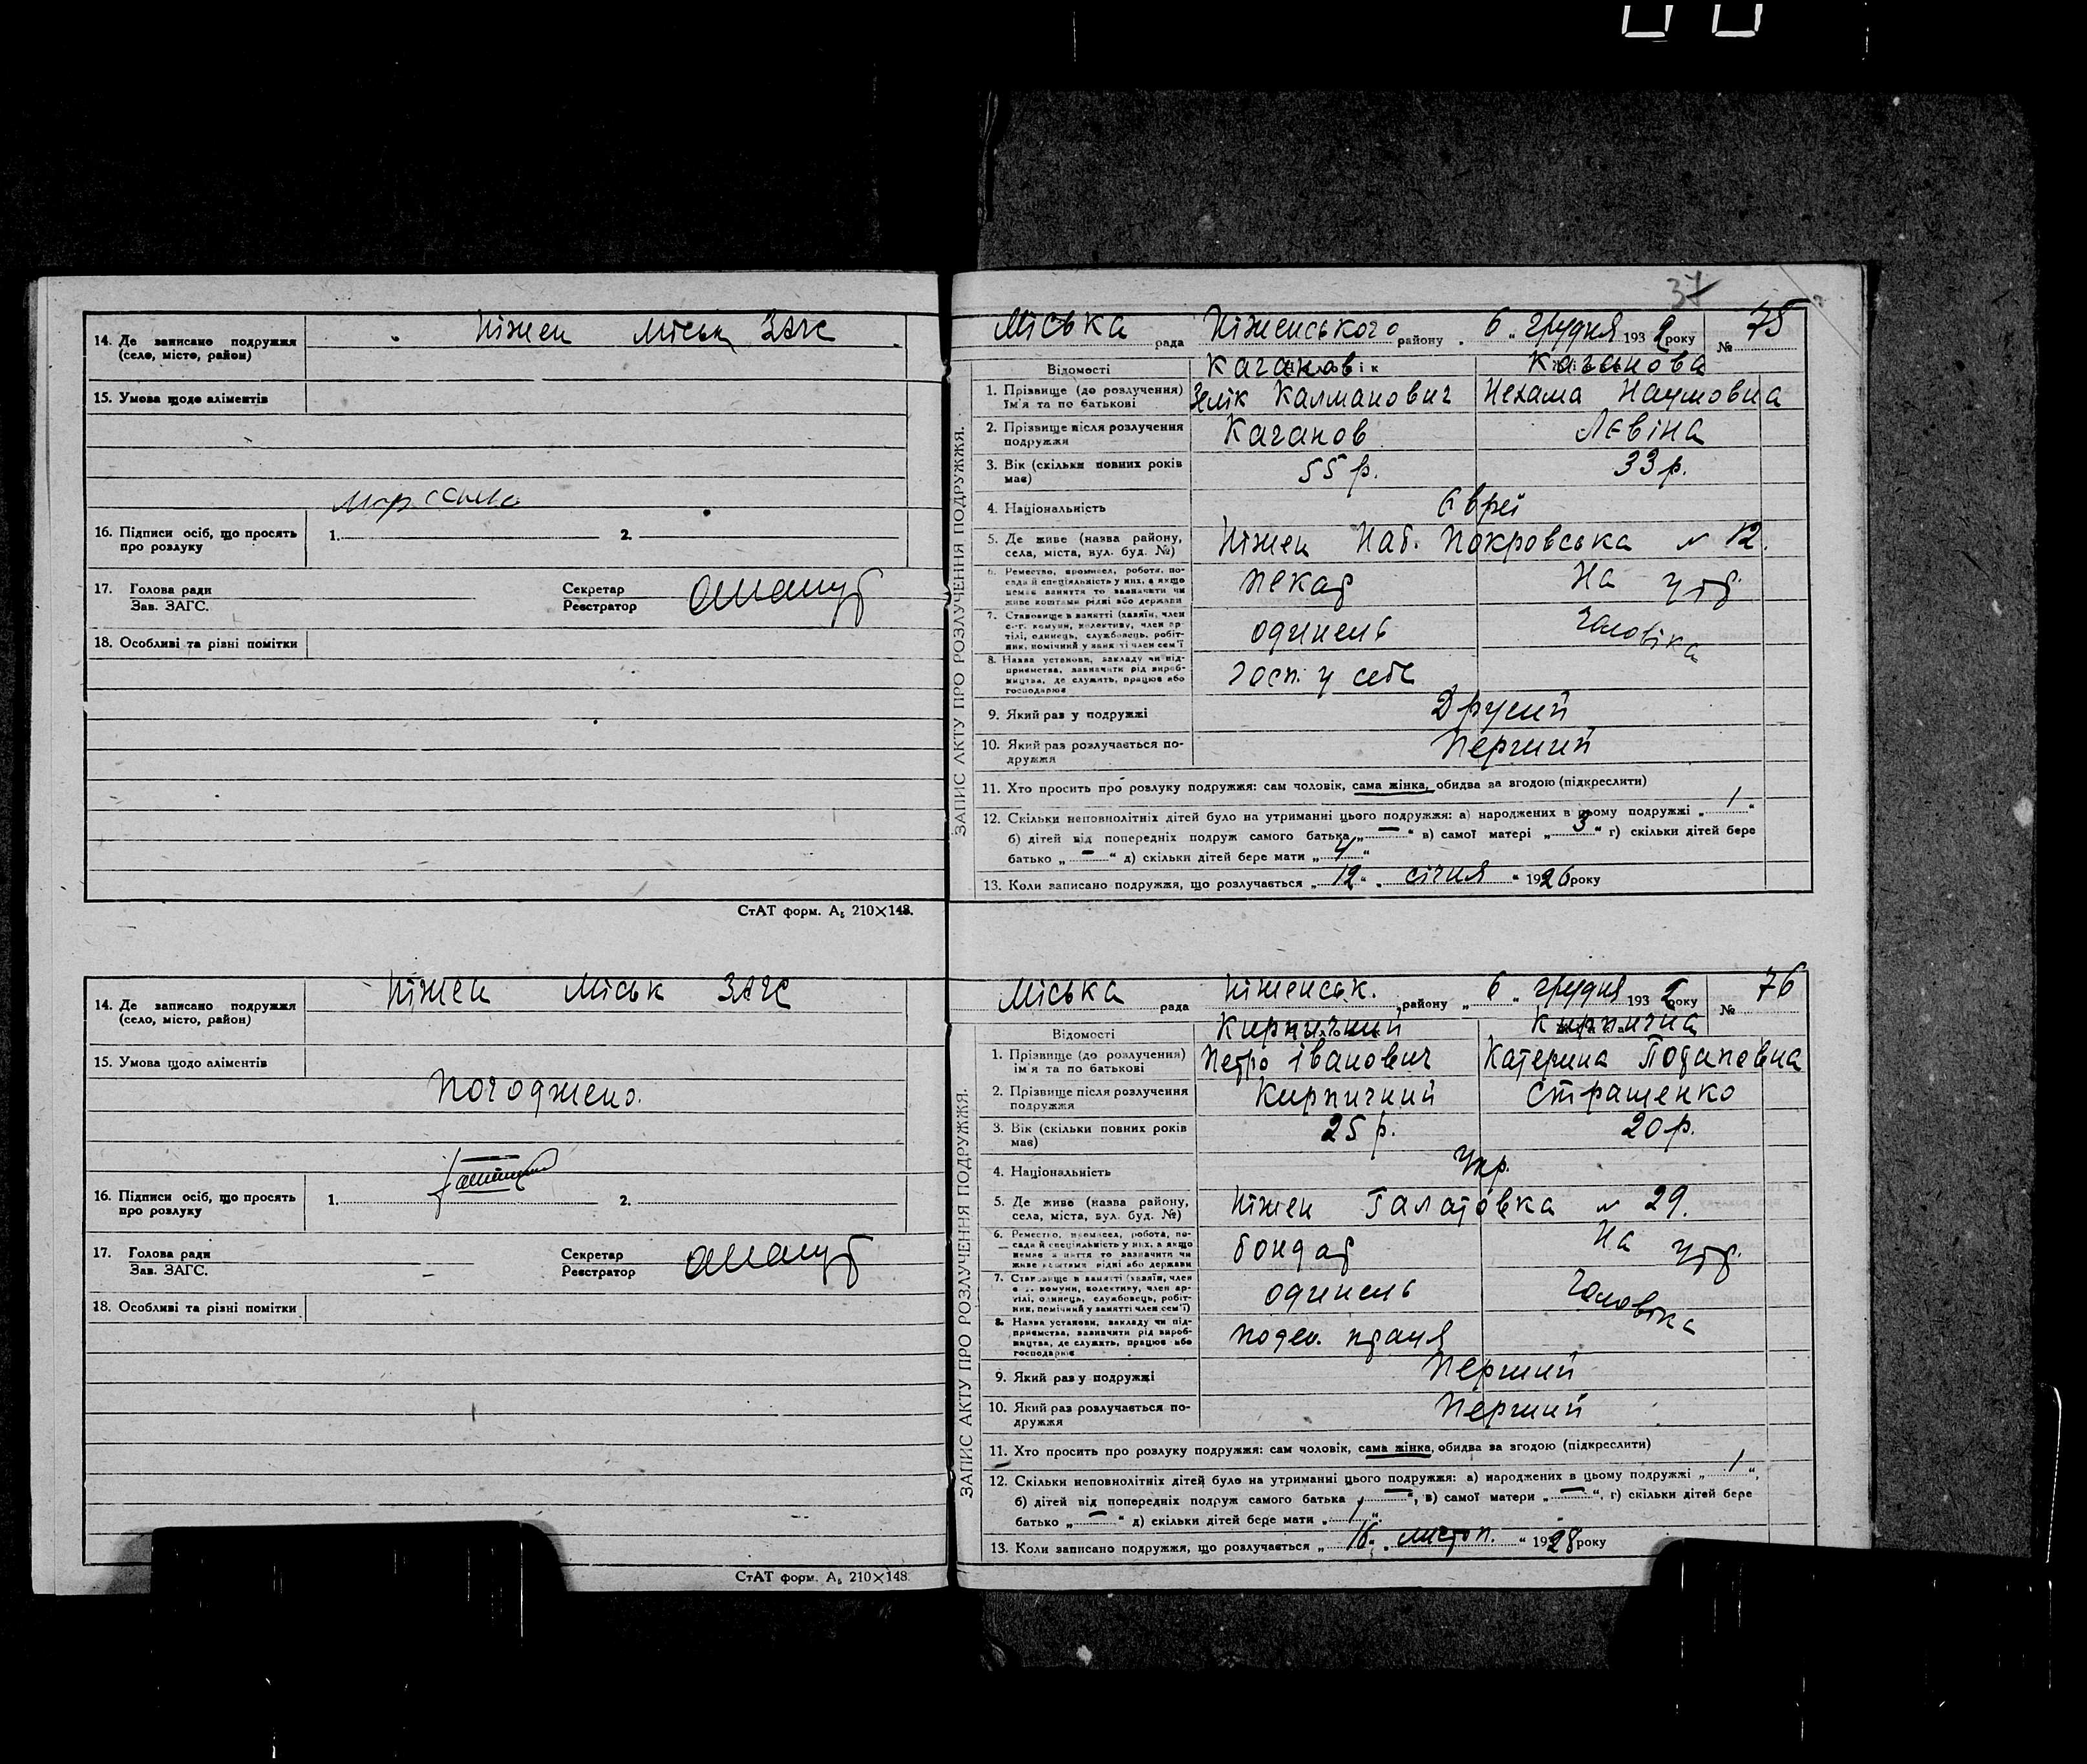 14. Де записано подружжя (село, місто, район)
Ніжен Міськ ЗАГС
15. Умова щодо аліментів
16. Підписи осіб, що просять про розлуку
1. 2.
17. Голова ради
Зав. ЗАГС.
Секретар
Реєстратор
18. Особливі та рівні помітки
СтАТ форм. А₅ 210×148.
37
Міська рада Ніженського району „ 6 „ грудня 1932 року № 75
ЗАПИС АКТУ ПРО РОЗЛУЧЕННЯ ПОДРУЖЖЯ.
Відомості Каганов Каганова
1. Прізвище (до розлучення) ім'я та по батькові
Зелік Калманович Нехама Наумовна
2. Прізвище після розлучення подружжя
Каганов Лєвіна
3. Вік (скільки повних років має)
55 р. 33 р.
4. Національність
Євреї
5. Де живе (назва району, села, міста, вул. буд. №)
Ніжен Наб. Покровська № 12.
6. Ремество, промисел, робота, посада й спеціяльність у них, а якщо немає заняття то зазначити чи живе коштами рідні або держави
пекар На утр.
7. Становище в занятті (хазяїн, член с.-г. комуни, колективу, член артілі, одинець, службовець, робітник, помічний у занятті член сем'ї
одинець чоловіка
8. Назва установи, закладу чи підприємства, зазначити рід виробництва, де служить, працює або господарює
госп. у себе
9. Який раз у подружжі
Другий
10. Який раз розлучається подружжя
Перший
11. Хто просить про розлуку подружжя: сам чоловік, сама жінка, обидва за згодою (підкреслити)
12. Скільки неповнолітніх дітей було на утриманні цього подружжя: а) народжених в цьому подружжі „ 1 “
б) дітей від попередніх подруж самого батька „ — “ в) самої матері „ 3 “ г) скільки дітей бере
батько „ — “ д) скільки дітей бере мати „ 4 “
13. Коли записано подружжя, що розлучається „ 12 “ „ січня “ 1926 року
14. Де записано подружжя (село, місто, район)
Ніжен Міськ ЗАГС
15. Умова щодо аліментів
Погоджено.
16. Підписи осіб, що просять про розлуку
1. 2.
17. Голова ради
Зав. ЗАГС.
Секретар
Реєстратор
18. Особливі та рівні помітки
СтАТ форм. А₅ 210×148.
Міська рада Ніженськ. району „ 6 „ грудня 1932 року № 76
ЗАПИС АКТУ ПРО РОЗЛУЧЕННЯ ПОДРУЖЖЯ.
Відомості Кирпичний Кирпична
1. Прізвище (до розлучення) ім'я та по батькові
Петро Іванович Катерина Потаповна
2. Прізвище після розлучення подружжя
Кирпичний Страшенко
3. Вік (скільки повних років має)
25 р. 20 р.
4. Національність
Укр.
5. Де живе (назва району, села, міста, вул. буд. №)
Ніжен Галатовка № 29.
6. Ремество, промисел, робота, посада й спеціяльність у них, а якщо немає заняття то зазначити чи живе коштами рідні або держави
бондар На утр.
7. Становище в занятті (хазяїн, член с.-г. комуни, колективу, член артілі, одинець, службовець, робітник, помічний у занятті член сем'ї)
одинець чоловіка
8. Назва установи, закладу чи підприємства, зазначити рід виробництва, де служить, працює або господарює
поден. праця
9. Який раз у подружжі
Перший
10. Який раз розлучається подружжя
Перший
11. Хто просить про розлуку подружжя: сам чоловік, сама жінка, обидва за згодою (підкреслити)
12. Скільки неповнолітніх дітей було на утриманні цього подружжя: а) народжених в цьому подружжі „ 1 “,
б) дітей від попередніх подруж самого батька „ — “, в) самої матери „ — “, г) скільки дітей бере
батько „ — “ д) скільки дітей бере мати „ 1 “.
13. Коли записано подружжя, що розлучається „ 16 „ „ листоп. “ 1928 року